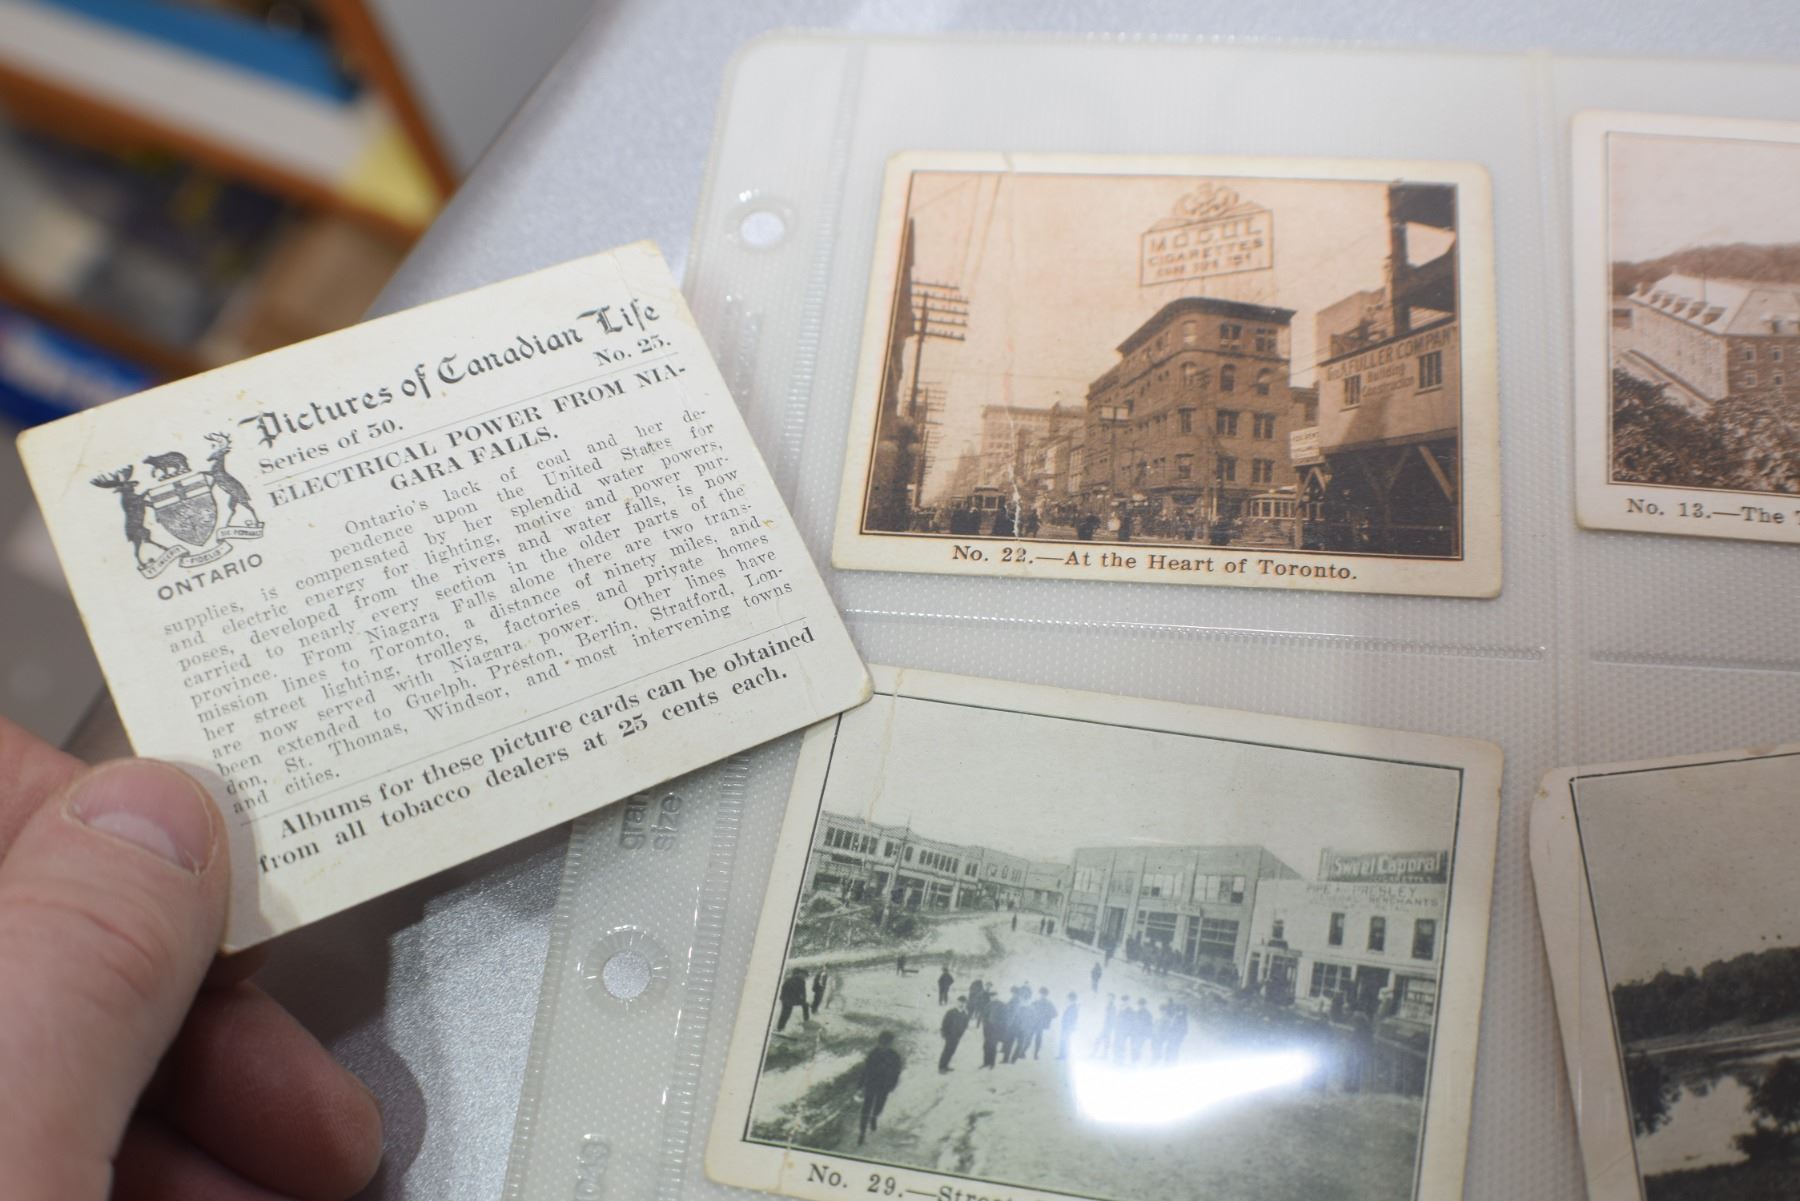 Pictures of Canadian Life
Series of 50. No. 25.
ELECTRICAL POWER FROM NIA-
GARA FALLS.
ONTARIO
Ontario's lack of coal and her de-
pendence upon the United States for
supplies, is compensated by her splendid water powers,
and electric energy for lighting, motive and power pur-
poses, developed from the rivers and water falls, is now
carried to nearly every section in the older parts of the
province. From Niagara Falls alone there are two trans-
mission lines to Toronto, a distance of ninety miles, and
her street lighting, trolleys, factories and private homes
are now served with Niagara power. Other lines have
been extended to Guelph, Preston, Berlin, Stratford, Lon-
don, St. Thomas, Windsor, and most intervening towns
and cities.
Albums for these picture cards can be obtained
from all tobacco dealers at 25 cents each.
MOGUL
CIGARETTES
FULLER COMPANY
Building
Construction
No. 22.—At the Heart of Toronto.
No. 13.—The
Sweet Caporal
PRESLEY
MERCHANTS
No. 29.—Street
size